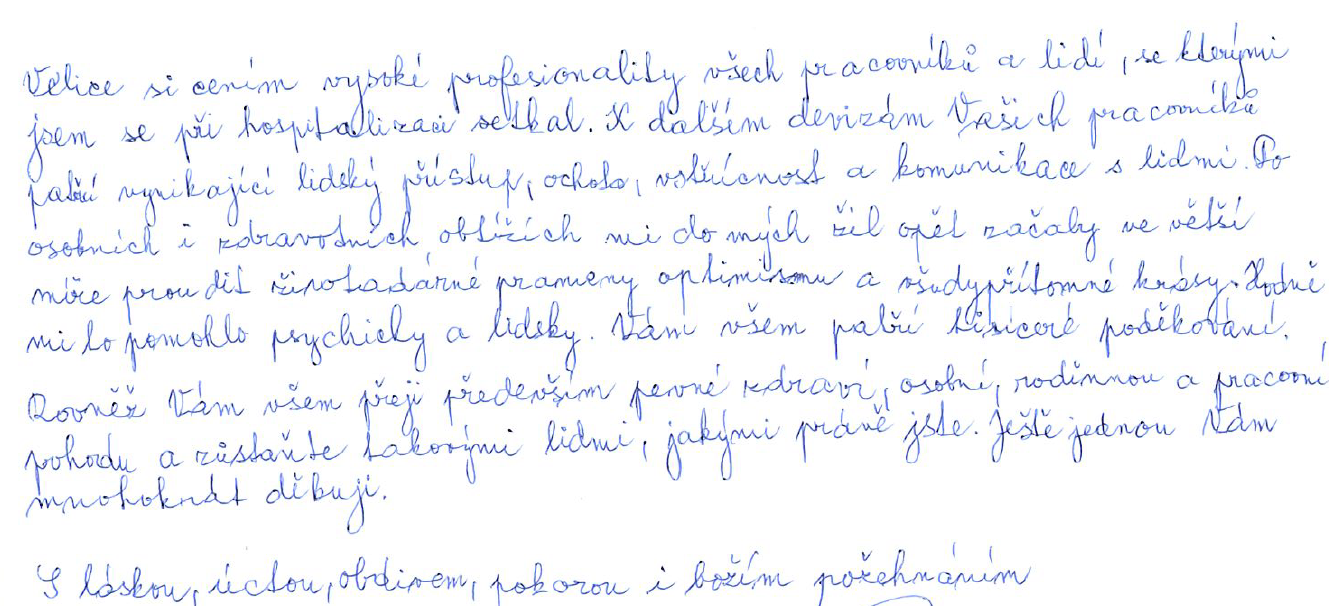 Velice si cením vysoké profesionality všech pracovníků a lidí, se kterými
jsem se při hospitalizaci setkal. K dalším devizám Vašich pracovníků
patří vynikající lidský přístup, ochota, vstřícnost a komunikace s lidmi. Po
osobních i zdravotních obtížích mi do mých žil opět začaly ve větší
míře proudit životadárné prameny optimismu a všudypřítomné krásy. Hodně
mi to pomohlo psychicky a lidsky. Vám všem patří tisíceré poděkování.
Rovněž Vám všem přeji především pevné zdraví, osobní, rodinnou a pracovní
pohodu a zůstaňte takovými lidmi, jakými právě jste. Ještě jednou Vám
mnohokrát děkuji.
S láskou, úctou, obdivem, pokorou i božím požehnáním